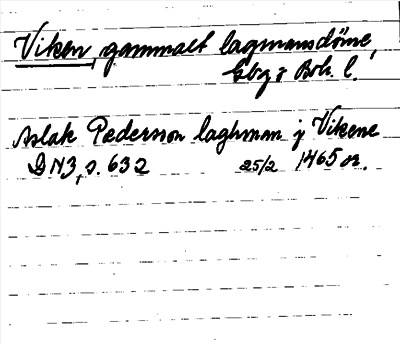 Viken, gammalt lagmansdöme,
Gbg o Boh. l.
Aslak Pederson laghman j Vikene
DN3, s. 632 25/2 1465 or.